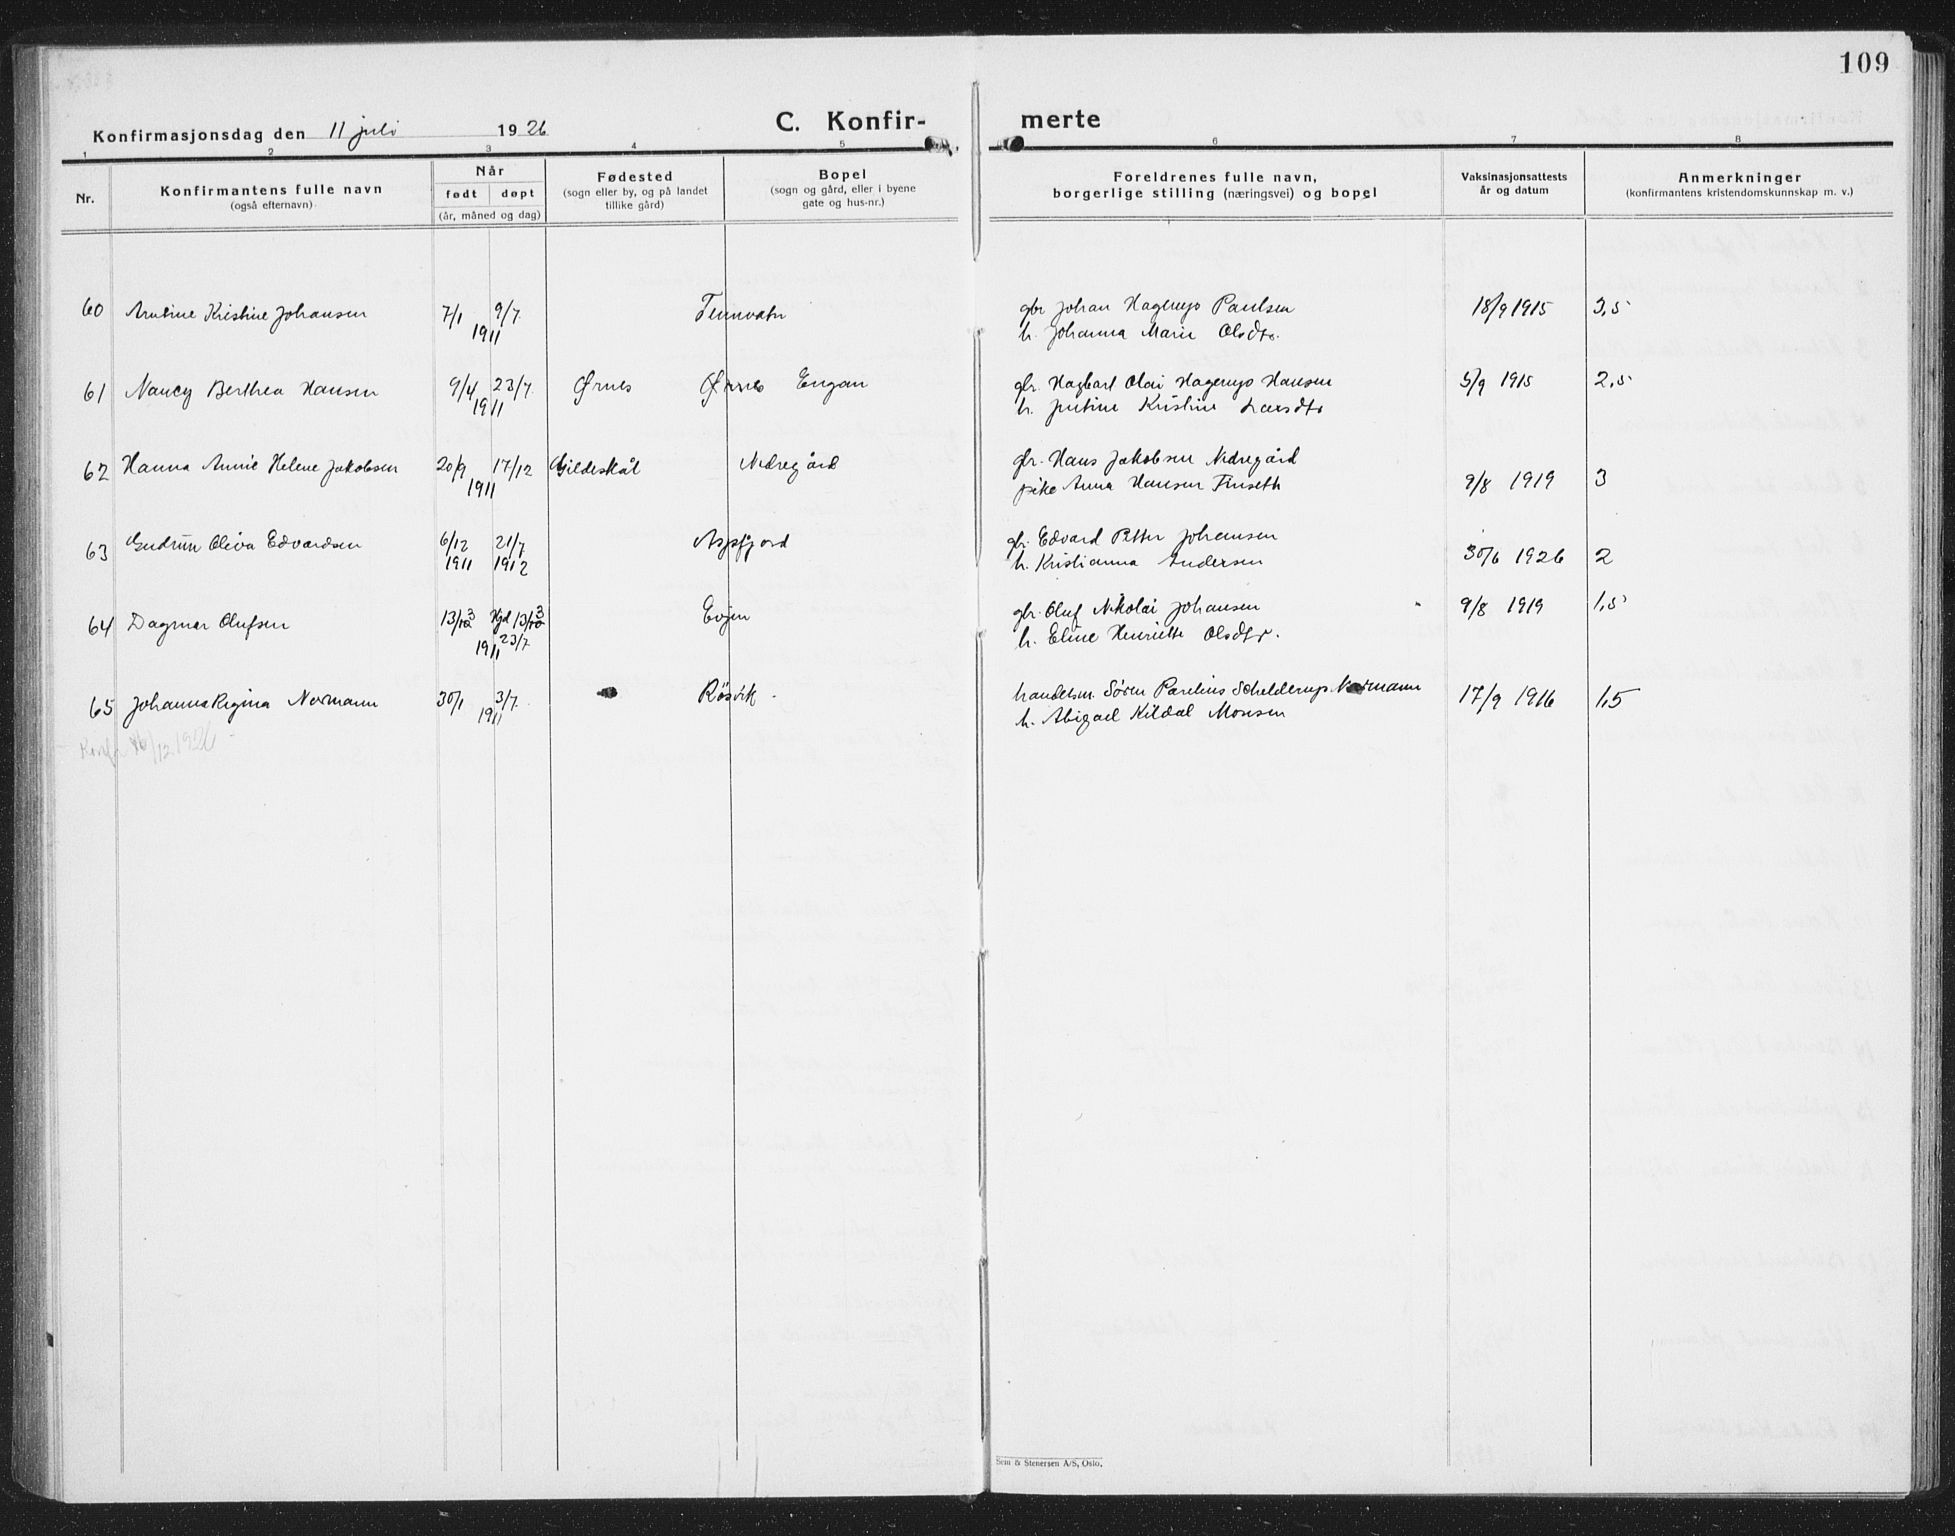 109
Konfirmasjonsdag den 11 juli 1926 C. Konfir- merte
1 2 3 4 5 6 7 8
Nr. Konfirmantens fulle navn (også efternavn) Når født døpt (år, måned og dag) Fødested (sogn eller by, og på landet tillike gård) Bopel (sogn og gård, eller i byene gate og hus-nr.) Foreldrenes fulle navn, borgerlige stilling (næringsvei) og bopel Vaksinasjonsattests år og datum Anmerkninger (konfirmantens kristendomskunnskap m. v.)
60 Kristine Johansen 7/1 9/7 gbr Johan Hagerup Paulsen 18/9 1915 3,5
1911 h. Johanna Marie Olsdtr.
61 Nancy Berthea Hansen 9/4 23/7 Ørnes Ørnes Engan gbr. Hagbart Olai Hagerup Hansen 5/9 1915 2,5
1911 h. Justine Kristine Larsdtr
62 Hanna Annie Helene Jakobsen 20/9 17/12 Gildeskål Nedregård gbr. Hans Jakobsen Nedregård
1911 pike Anna Hansen Finseth 9/8 1919 3
63 Gudrun Oliva Edvardsen 6/12 21/7 Aspfjord gbr. Edvard Petter Johansen
1911 1912 h. Kristianna Andersen 30/6 1926 2
64 Dagmar Olufsen 13/3 Hjd 13/3 Evjen gbr. Oluf Nikolai Johansen 9/8 1919 1,5
1911 23/7 h. Eline Henriette Olsdtr.
65 Johanna Regina Normann 30/1 3/7 Røsvik. handelsm. Sören Parelius Schelderup Normann 17/9 1916 1,5
1911 h. Abigael Kildal Monsen
Konf. 16/12 1926
Sem & Stenersen A/S, Oslo.